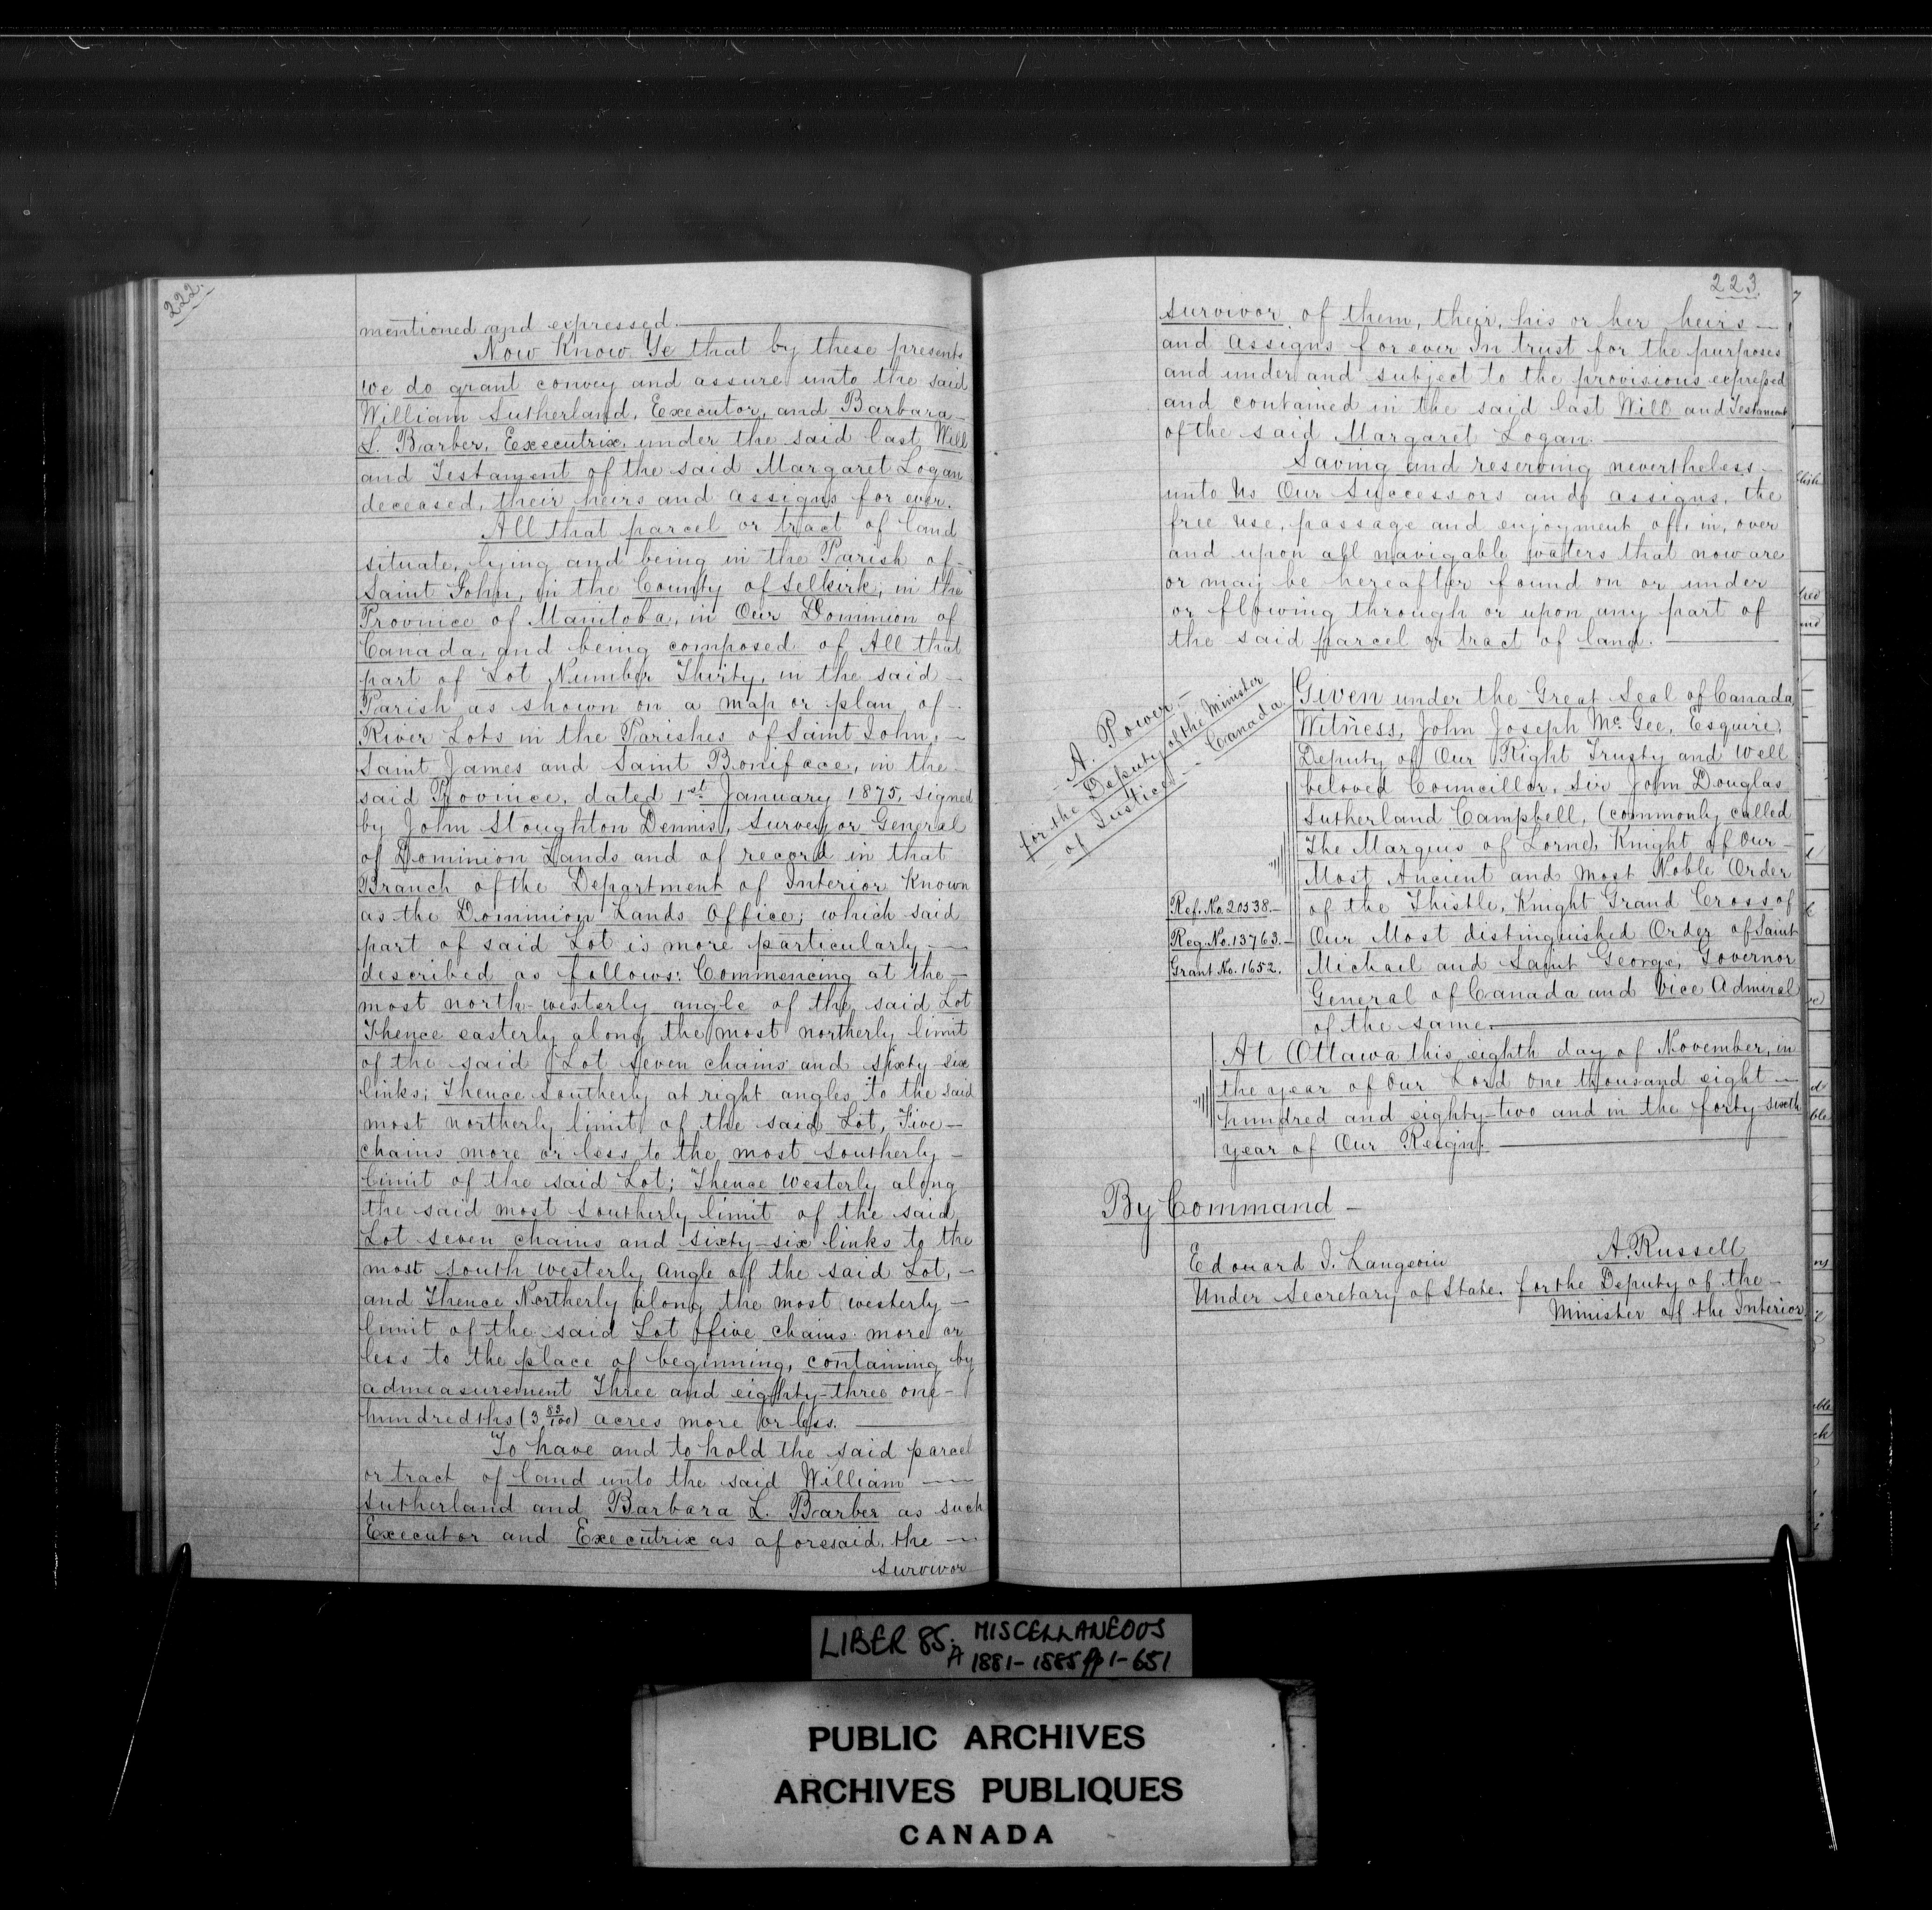 222.
mentioned and expressed.
Now Know Ye that by these presents
we do grant convey and assure unto the said
William Sutherland, Executor, and Barbara
L. Barber, Executrix, under the said last Will
and Testament of the said Margaret Logan
deceased, their heirs and assigns for ever.
All that parcel or tract of land
situate, lying and being in the Parish of
Saint John, in the County of Selkirk, in the
Province of Manitoba, in Our Dominion of
Canada, and being composed of All that
part of Lot Number Thirty, in the said
Parish as shown on a map or plan of
River Lots in the Parishes of Saint John,
Saint James and Saint Boniface, in the
said Province, dated 1st January 1875, signed
by John Stoughton Dennis, Surveyor General
of Dominion Lands and of record in that
Branch of the Department of Interior Known
as the Dominion Lands Office; which said
part of said Lot is more particularly
described as follows: Commencing at the
most north-westerly angle of the said Lot
Thence easterly along the most northerly limit
of the said Lot seven chains and sixty-six
links; Thence Southerly at right angles to the said
most northerly limit of the said Lot, Five
chains more or less to the most southerly
limit of the said Lot; Thence westerly along
the said most southerly limit of the said
Lot seven chains and sixty-six links to the
most south westerly angle of the said Lot,
and Thence Northerly along the most westerly
limit of the said Lot five chains more or
less to the place of beginning, containing by
admeasurement Three and eighty-three one
hundredths (3 83/100) acres more or less.
To have and to hold the said parcel
or tract of land unto the said William
Sutherland and Barbara L. Barber as such
Executor and Executrix as aforesaid, the
survivor
223
survivor of them, their, his or her heirs
and assigns for ever In trust for the purposes
and under and subject to the provisions expressed
and contained in the said last Will and Testament
of the said Margaret Logan.
Saving and reserving nevertheless
unto Us Our Successors and assigns, the
free use, passage and enjoyment of, in, over
and upon all navigable waters that now are
or may be hereafter found on or under
or flowing through or upon any part of
the said parcel or tract of land.
A. Power,
for the Deputy of the Minister
of Justice - Canada
Ref. No. 20538.
Reg. No. 13763.
Grant No. 1652.
Given under the Great Seal of Canada
Witness, John Joseph Mc Gee, Esquire,
Deputy of Our Right Trusty and Well
beloved Councillor, Sir John Douglas
Sutherland Campbell, (commonly called
The Marquis of Lorne), Knight of Our
Most Ancient and Most Noble Order
of the Thistle, Knight Grand Cross of
Our Most distinguished Order of Saint
Michail and Saint George, Governor
General of Canada and Vice Admiral
of the same.
At Ottawa this eighth day of November, in
the year of Our Lord one thousand eight
hundred and eighty-two and in the forty-sixth
year of Our Reign.
By Command
Edouard J. Langevin
Under Secretary of State.
A. Russell
for the Deputy of the
Minister of the Interior
LIBER 85. MISCELLANEOUS
A 1881-1885 pp 1-651
PUBLIC ARCHIVES
ARCHIVES PUBLIQUES
CANADA